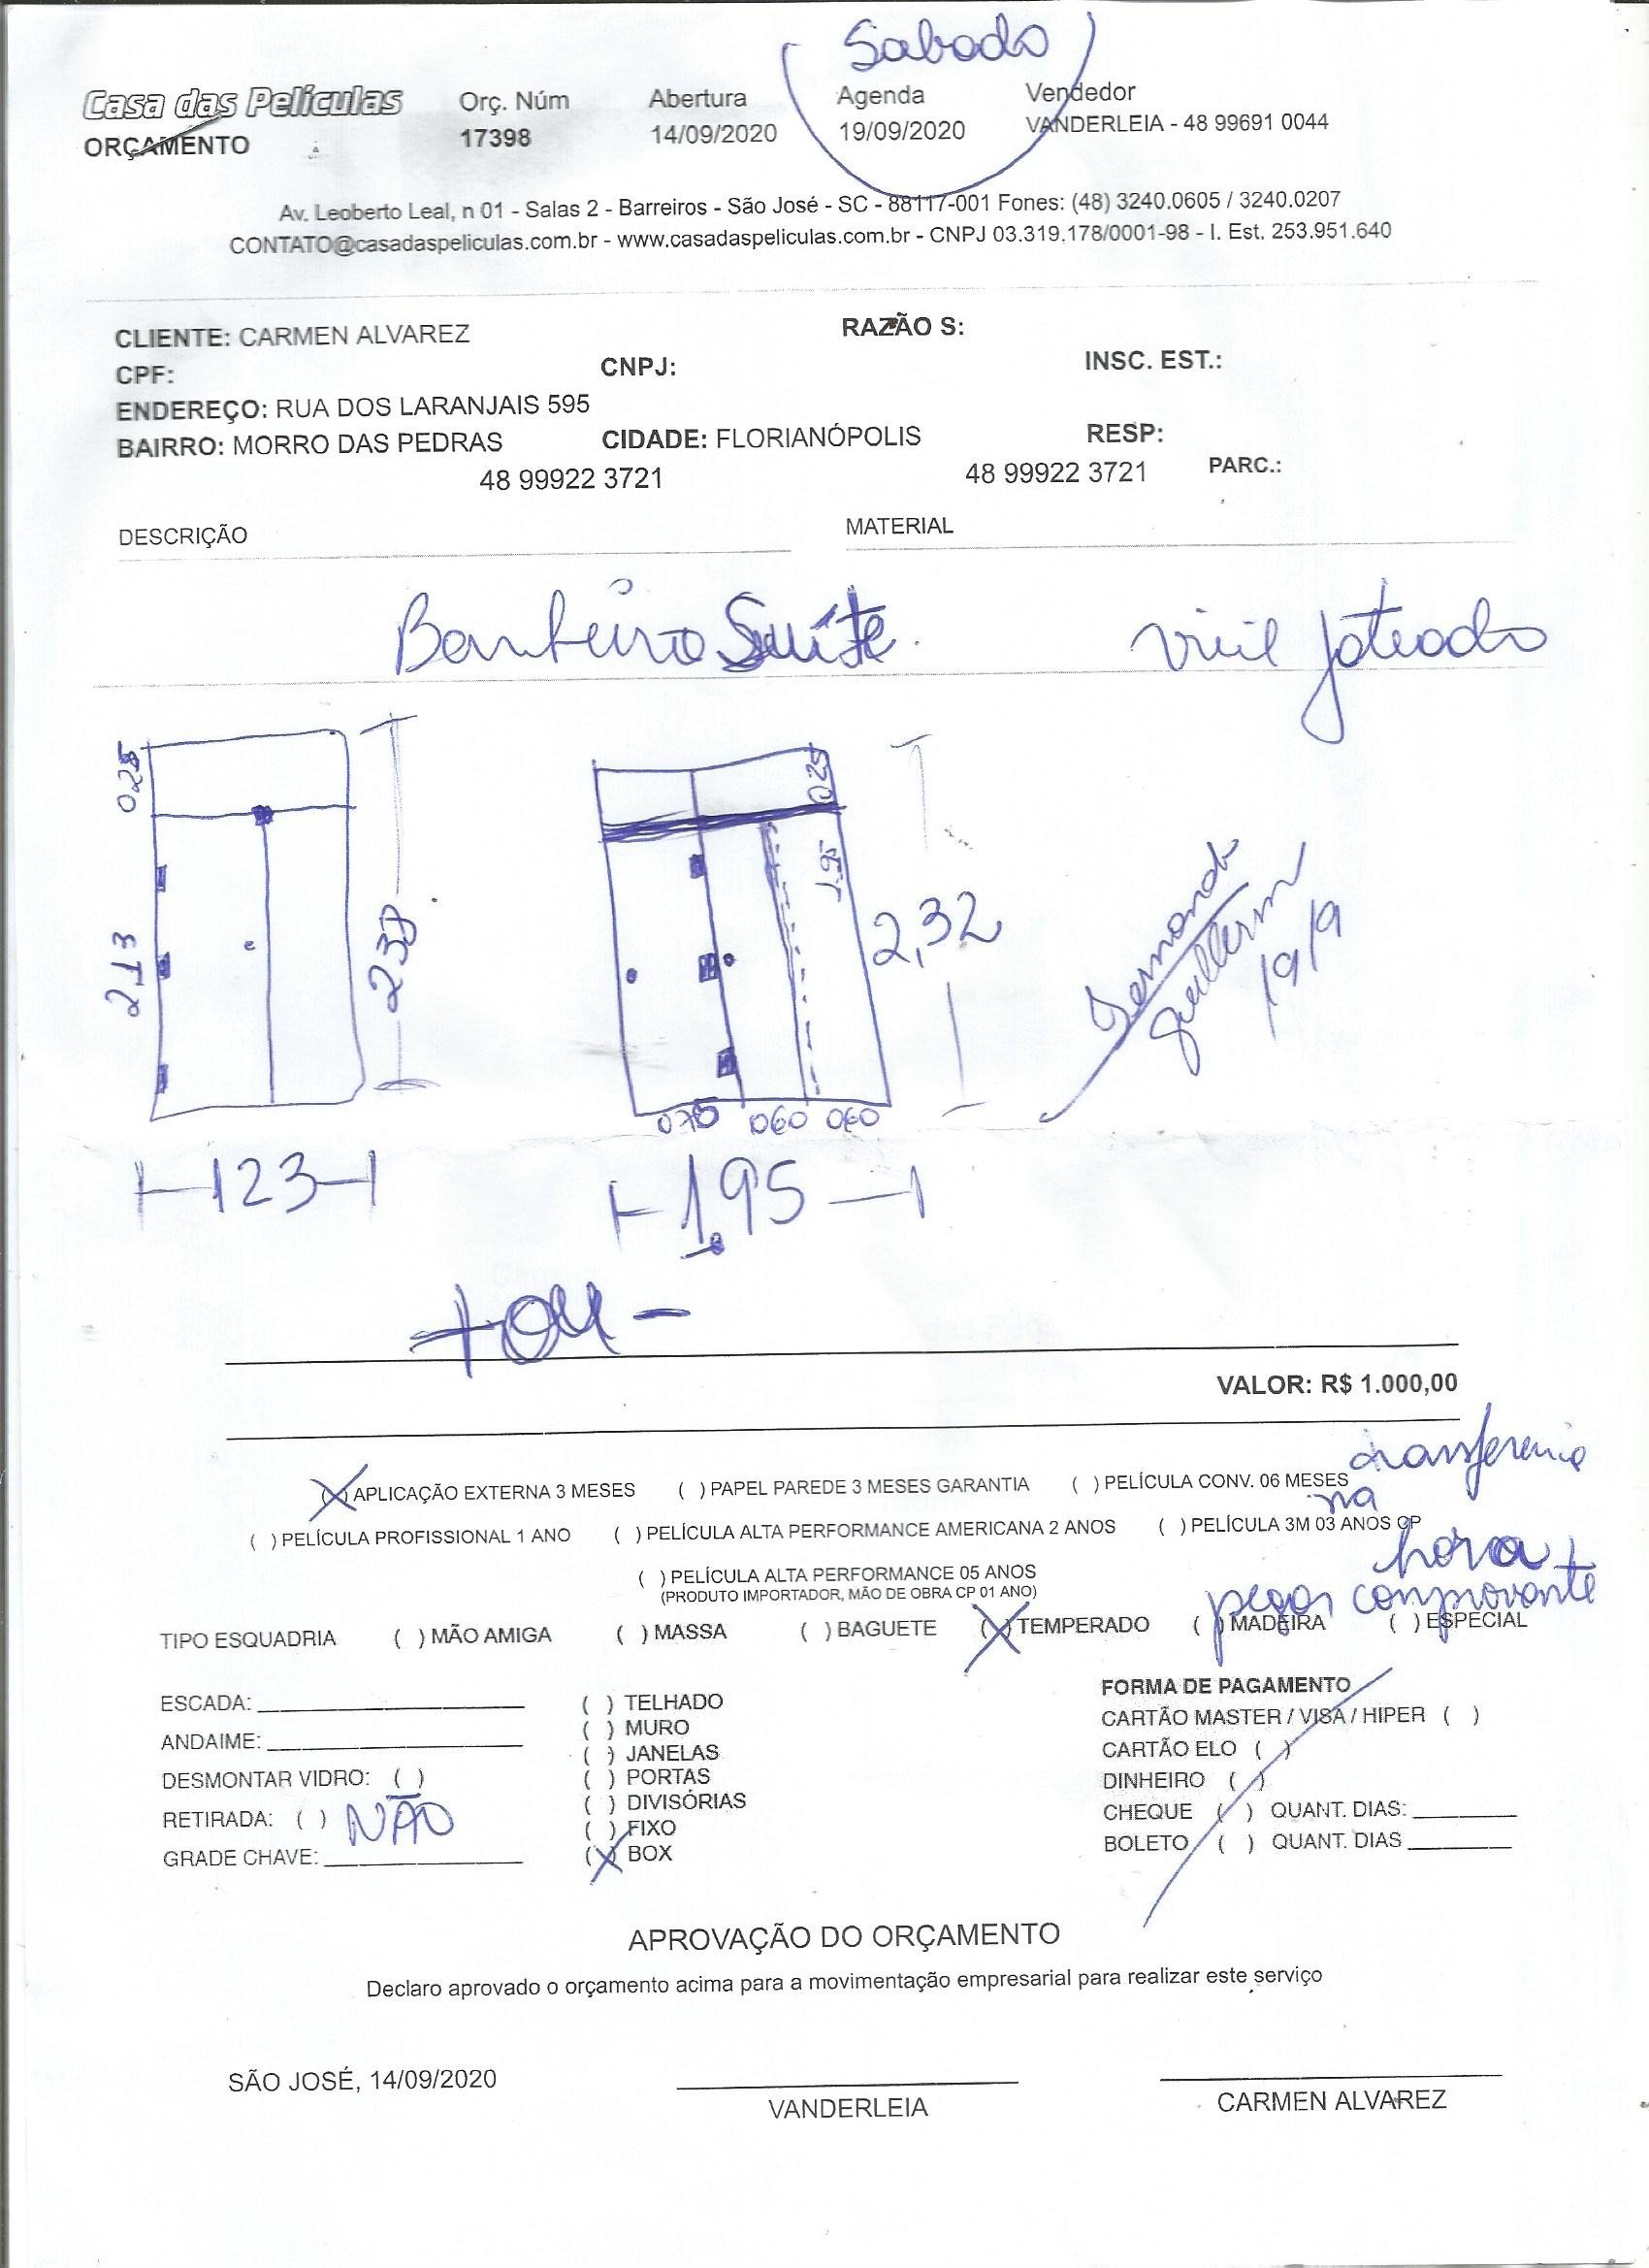 Sabado
Casa das Películas Orç. Núm Abertura Agenda Vendedor
ORÇAMENTO 17398 14/09/2020 19/09/2020 VANDERLEIA - 48 99691 0044
Av. Leoberto Leal, n 01 - Salas 2 - Barreiros - São José - SC - 88117-001 Fones: (48) 3240.0605 / 3240.0207
CONTATO@casadaspeliculas.com.br - www.casadaspeliculas.com.br - CNPJ 03.319.178/0001-98 - I. Est. 253.951.640
CLIENTE: CARMEN ALVAREZ RAZÃO S:
CPF: CNPJ: INSC. EST.:
ENDEREÇO: RUA DOS LARANJAIS 595
BAIRRO: MORRO DAS PEDRAS CIDADE: FLORIANÓPOLIS RESP:
48 99922 3721 48 99922 3721 PARC.:
DESCRIÇÃO MATERIAL
Banheiro Suíte. vinil jateado
025 025
1.95
2,13 2,32
19/9
060 060
123 1,95
VALOR: R$ 1.000,00
transferencia
(X) APLICAÇÃO EXTERNA 3 MESES ( ) PAPEL PAREDE 3 MESES GARANTIA ( ) PELÍCULA CONV. 06 MESES
na
( ) PELÍCULA PROFISSIONAL 1 ANO ( ) PELÍCULA ALTA PERFORMANCE AMERICANA 2 ANOS ( ) PELÍCULA 3M 03 ANOS CP
hora +
( ) PELÍCULA ALTA PERFORMANCE 05 ANOS
(PRODUTO IMPORTADOR, MÃO DE OBRA CP 01 ANO)
pegar comprovante
TIPO ESQUADRIA ( ) MÃO AMIGA ( ) MASSA ( ) BAGUETE (X) TEMPERADO ( ) MADEIRA ( ) ESPECIAL
ESCADA: ( ) TELHADO FORMA DE PAGAMENTO
ANDAIME: ( ) MURO CARTÃO MASTER / VISA / HIPER ( )
( ) JANELAS CARTÃO ELO ( )
DESMONTAR VIDRO: ( ) ( ) PORTAS DINHEIRO ( )
RETIRADA: ( ) NÃO ( ) DIVISÓRIAS CHEQUE ( ) QUANT. DIAS:
( ) FIXO BOLETO ( ) QUANT. DIAS
GRADE CHAVE: (X) BOX
APROVAÇÃO DO ORÇAMENTO
Declaro aprovado o orçamento acima para a movimentação empresarial para realizar este serviço
SÃO JOSÉ, 14/09/2020
VANDERLEIA CARMEN ALVAREZ